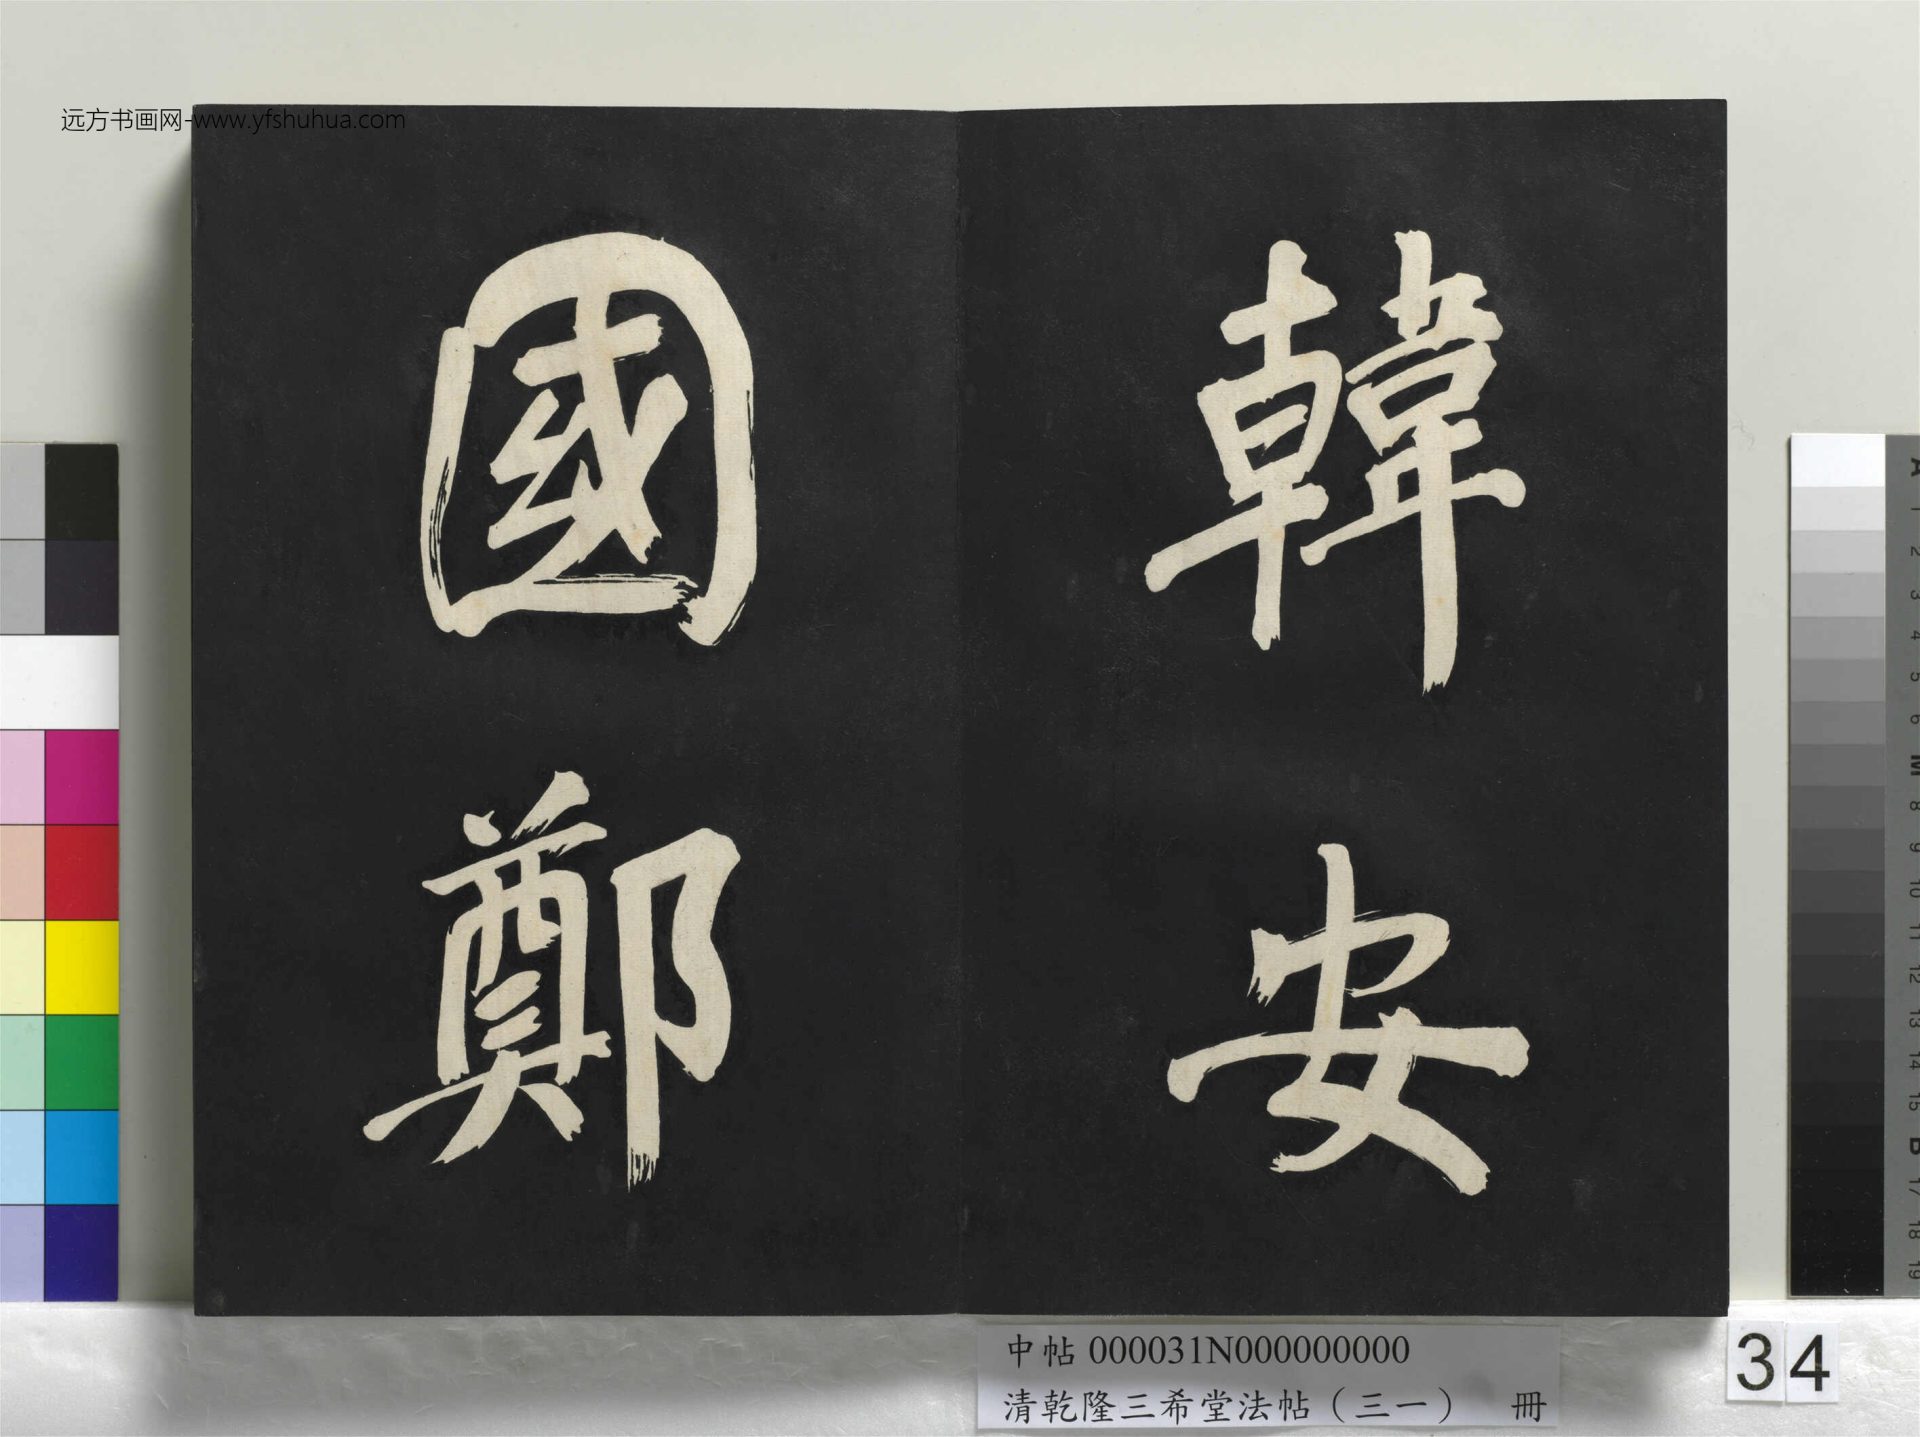 远方书画网-www.yfshuhua.com
韓安
國鄭
中帖 000031N000000000
清乾隆三希堂法帖（三一） 冊
34
A 1 2 3 4 5 6 M 8 9 10 11 12 13 14 15 B 17 18 19